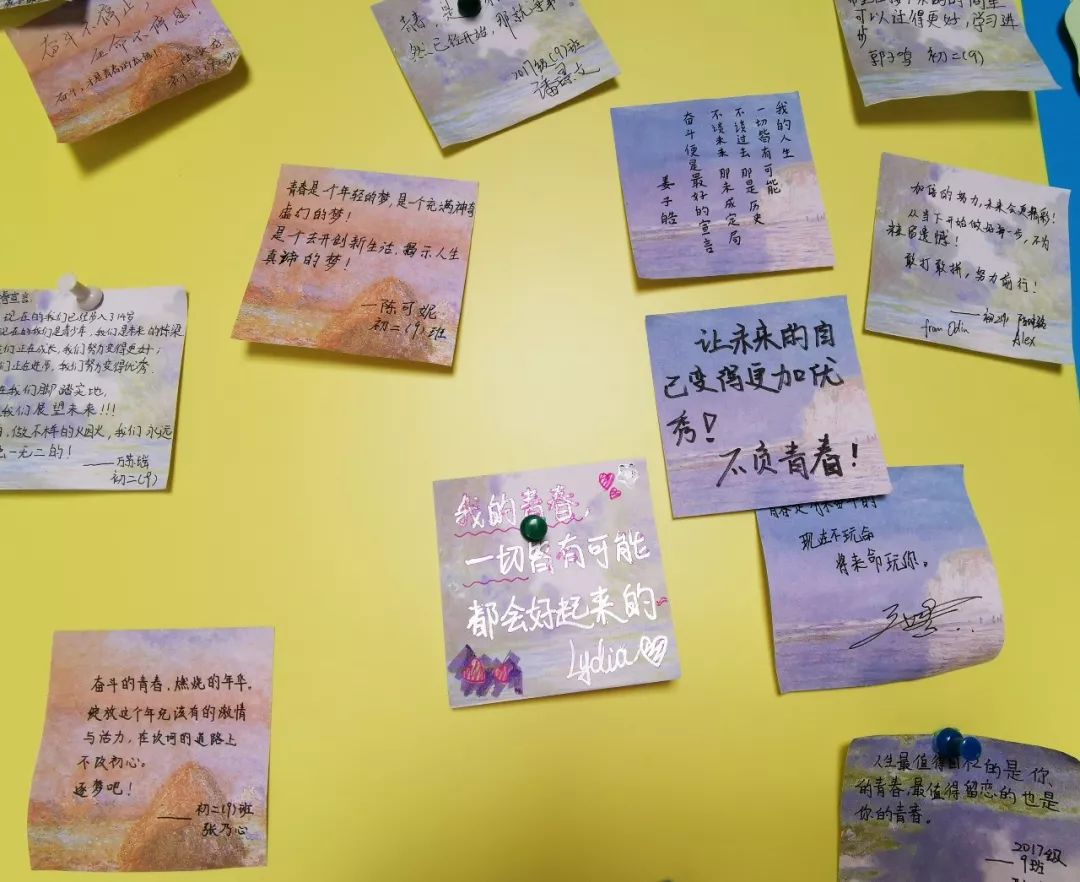 奋斗不停止，
生命不停息！
奋斗，才是青春的
青春，是
然已经开始，那就
2017级(9)班
潘
可以过得更好，学习进
步
郭子鸣 初二(9)
青春是一个年轻的梦，是一个充满神奇
虚幻的梦！
是个去开创新生活，揭示人生
真谛的梦！
—陈可妮
初二(9)班
我的人生
一切皆有可能
不谈过去 那是历史
不谈未来 那未成定局
奋斗便是最好的宣言
姜子皓
加倍的努力，未来会更精彩！
从当下开始做好每一步，不为
青春留遗憾！
敢打敢拼，努力前行！
from Odin
Alex
宣言
现在的我们已经步入了14岁
现在的我们是青少年，我们是未来的栋梁
我们正在成长，我们努力变得更好；
我们正在进步，我们努力变得优秀.
在我们脚踏实地，
我们展望未来!!!
做不一样的火焰，我们永远
独一无二的！
初二(9)
让未来的自
己变得更加优
秀！
不负青春！
现在不玩命
将来命玩你。
我的青春，
一切皆有可能
都会好起来的~
Lydia
奋斗的青春，燃烧的年华。
绽放这个年纪该有的激情
与活力，在坎坷的道路上
不改初心。
逐梦吧！
——初二(9)班
张乃心
人生最值得回忆的是你
的青春，最值得留恋的也是
你的青春。
2017级
—9班